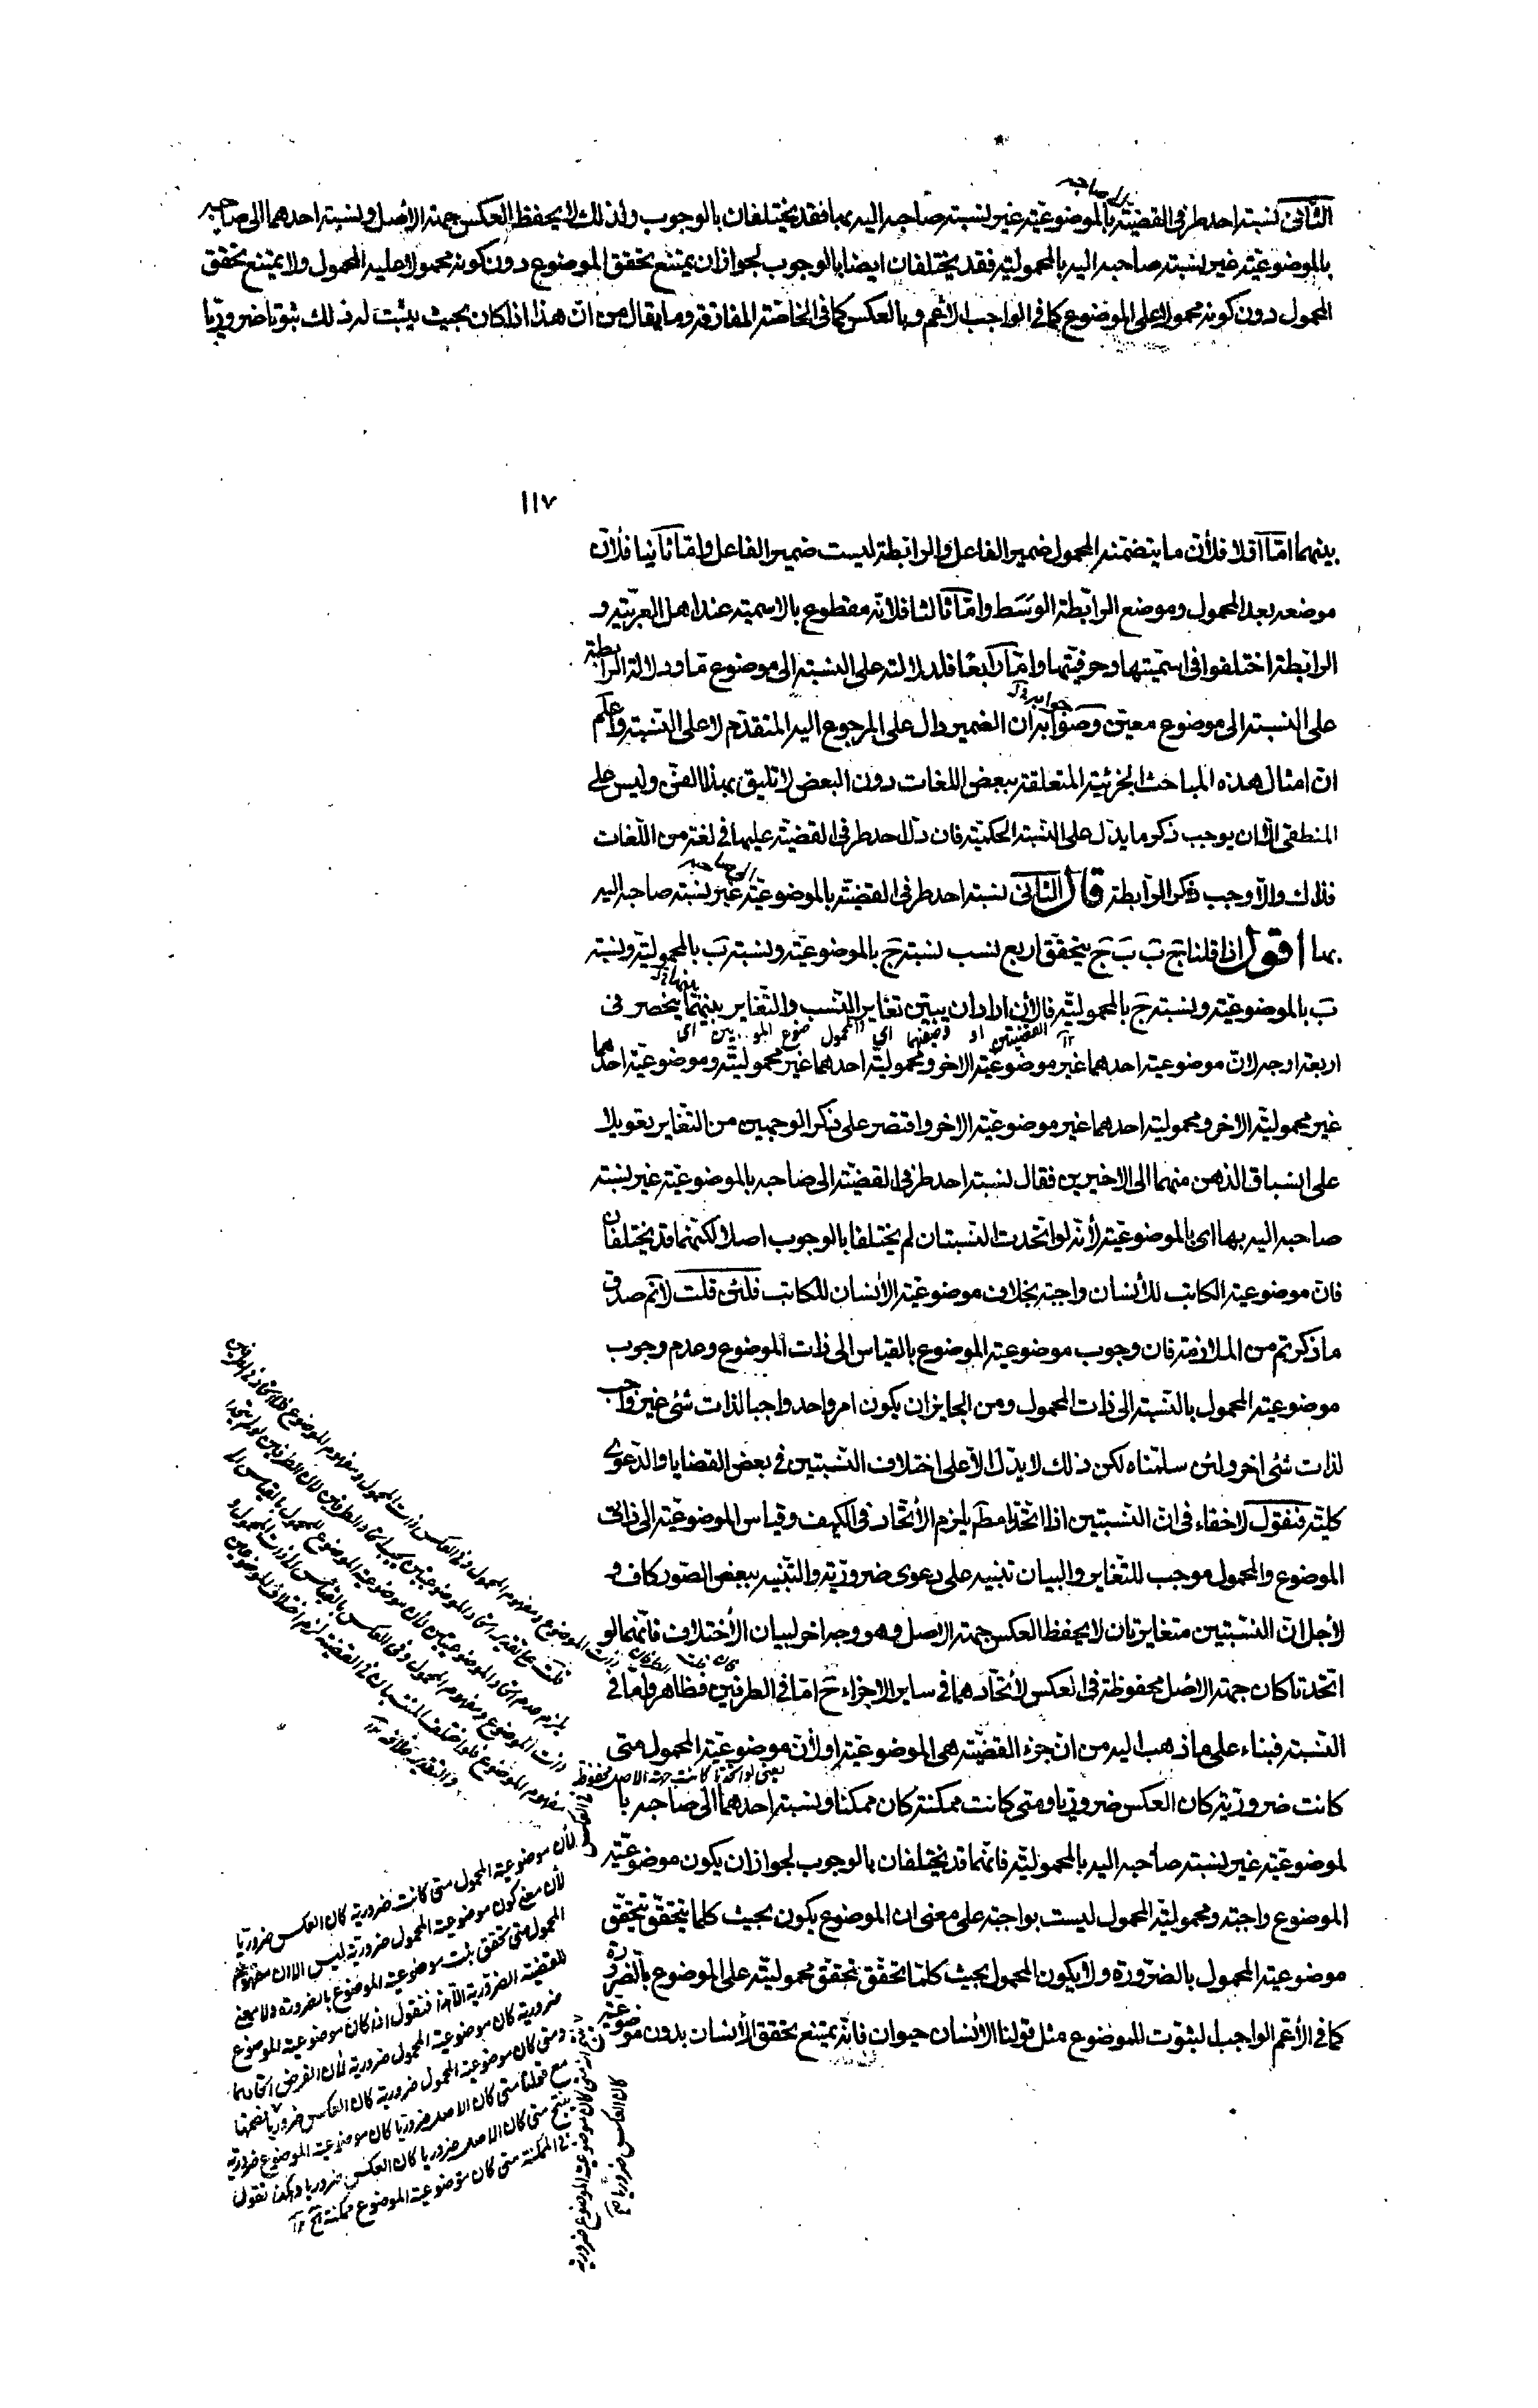 الثانى نسبة احد طرفى القضيّة بالموضوعيّة غير نسبة صاحبه اليه بها فقد يختلفان بالوجوب ولذلك لا يحفظ العكس جهة الأصل ونسبة احدهما الى صاحبه
الى صاحبه
بالموضوعيّة غير نسبة صاحبه اليه بالمحموليّة فقد يختلفان ايضا بالوجوب لجواز ان يمتنع تحقق الموضوع دون كونه محمولا عليه المحمول ولا يمتنع تحقق
المحمول دون كونه محمولا على الموضوع كما فى الواجب الأعم وبالعكس كما فى الخاصّة المفارقة وما يقال من انّ هذا اذا كان بحيث يثبت له ذلك ثبوتا ضروريّا
١١٧
بينهما امّا اوّلا فلأنّ ما يتضمّنه المحمول ضمير الفاعل والرابطة ليست ضمير الفاعل وامّا ثانيا فلأنّ
موضعه بعد المحمول وموضع الرابطة الوسط وامّا ثالثا فلأنّه مقطوع بالاسمية عند اهل العربيّة و
الرابطة اختلفوا فى اسميّتها وحرفيّتها وامّا رابعا فلدلالته على النسبة الى موضوع مّا ودلالة الرابطة
على النسبة الى موضوع معيّن وصوابه ان الضمير دال على المرجوع اليه المتقدّم لا على النّسبة واعلم
انّ امثال هذه المباحث الجزئية المتعلقة ببعض اللغات دون البعض لا تليق بهذا الفنّ وليس على
المنطقى الّا ان يوجب ذكر ما يدلّ على النّسبة الحكميّة فان دلّ احد طرفى القضيّة عليها فى لغة من اللّغات
فذاك والّا وجب ذكر الرابطة قال الثانى نسبة احد طرفى القضيّة بالموضوعيّة غير نسبة صاحبه اليه
الى صاحبه
بها اقول اذا قلنا ج ب ب ج يتحقّق اربع نسب نسبة ج بالموضوعيّة ونسبة ب بالمحموليّة ونسبة
ب بالموضوعيّة ونسبة ج بالمحموليّة فالأن اراد ان يبيّن تغاير النّسب والتّغاير بينهما ينحصر فى
اربعة اوجه لانّ موضوعية احدهما غير موضوعيّة الاخر ومحموليّة احدهما غير محموليّته وموضوعيّة احدهما
غير محموليّة الاخر ومحموليّة احدهما غير موضوعيّة الاخر واقتصر على ذكر الوجهين من التّغاير تعويلا
على انسباق الذهن منهما الى الاخيرين فقال نسبة احد طرفى القضيّة الى صاحبه بالموضوعيّة غير نسبة
صاحبه اليه بها اى بالموضوعيّة لأنّه لو اتّحدت النّسبتان لم يختلفا بالوجوب اصلا لكنّهما قد يختلفان
فانّ موضوعية الكاتب للأنسان واجبة بخلاف موضوعيّة الأنسان للكاتب فلئن قلت لا نم صدق
ما ذكرتم من الملازمة فان وجوب موضوعية الموضوع بالقياس الى ذات الموضوع وعدم وجوب
موضوعية المحمول بالنّسبة الى ذات المحمول ومن الجايز ان يكون امر واحد واجبا لذات شئ غير واجب
لذات شئ اخر ولئن سلّمناه لكن ذلك لا يدلّ الّا على اختلاف النّسبتين فى بعض القضايا والدّعوى
كليّة فنقول لا خفاء فى انّ النّسبتين اذا اتّحدتا مط يلزم الأتّحاد فى الكيف وقياس الموضوعيّة الى ذاتى
الموضوع والمحمول موجب للتّغاير والبيان تنبيه على دعوى ضروريّة والتّنبيه ببعض الصّور كاف و
لأجل انّ النّسبتين متغايرتان لا يحفظ العكس جهة الاصل وهو وجه اخر لبيان الأختلاف فانّهما لو
اتّحدتا كان جهة الأصل محفوظة فى العكس لأتّحادهما فى ساير الاجزاء ح امّا فى الطرفين فظاهر وامّا فى
النّسبة فبناء على ما ذهب اليه من انّ جزء القضيّة هى الموضوعيّة او لأنّ موضوعيّة المحمول متى
يعنى لو اتحدتا كانت جهة الاصل محفوظة فى العكس
كانت ضروريّة كان العكس ضروريّا ومتى كانت ممكنة كان ممكنا ونسبة احدهما الى صاحبه با
لموضوعيّة غير نسبة صاحبه اليه بالمحموليّة فانّهما قد يختلفان بالوجوب لجواز ان يكون موضوعيّة
الموضوع واجبة ومحموليّة المحمول ليست بواجبة على معنى ان الموضوع يكون بحيث كلما يتحقّق يتحقّق
موضوعية المحمول بالضّرورة ولا يكون المحمول بحيث كلمّا تحقّق تحقّق محموليّته على الموضوع بالضّرورة
كما فى الأعّم الواجب الثبوت للموضوع مثل قولنا الأنسان حيوان فانّه يمتنع تحقق الأنسان بدون موضوعيّة
لأن موضوعية المحمول متى كانت ضرورية كان العكس ضروريّا
لأن معنى كون موضوعية المحمول ضروريّة ليس الا ان مفهوم
المحمول متى تحقق يثبت موضوعية الموضوع بالضرورة ولا معنى
للقضية الضرورية الا هذا فنقول اذا كان موضوعية الموضوع
ضرورية كان موضوعية المحمول ضرورية لأن الفرض اتحادهما
ومتى كان موضوعية المحمول ضرورية كان العكس ضروريا نضمها
مع قولنا متى كان الاصل ضروريا كان موضوعية الموضوع ضرورية
ينتج متى كان الاصل ضروريا كان العكس ضروريا وهكذا نقول
فى الممكنة متى كان موضوعية الموضوع ممكنة الخ
متى كان موضوعية الموضوع ضرورية
كان العكس ضروريا